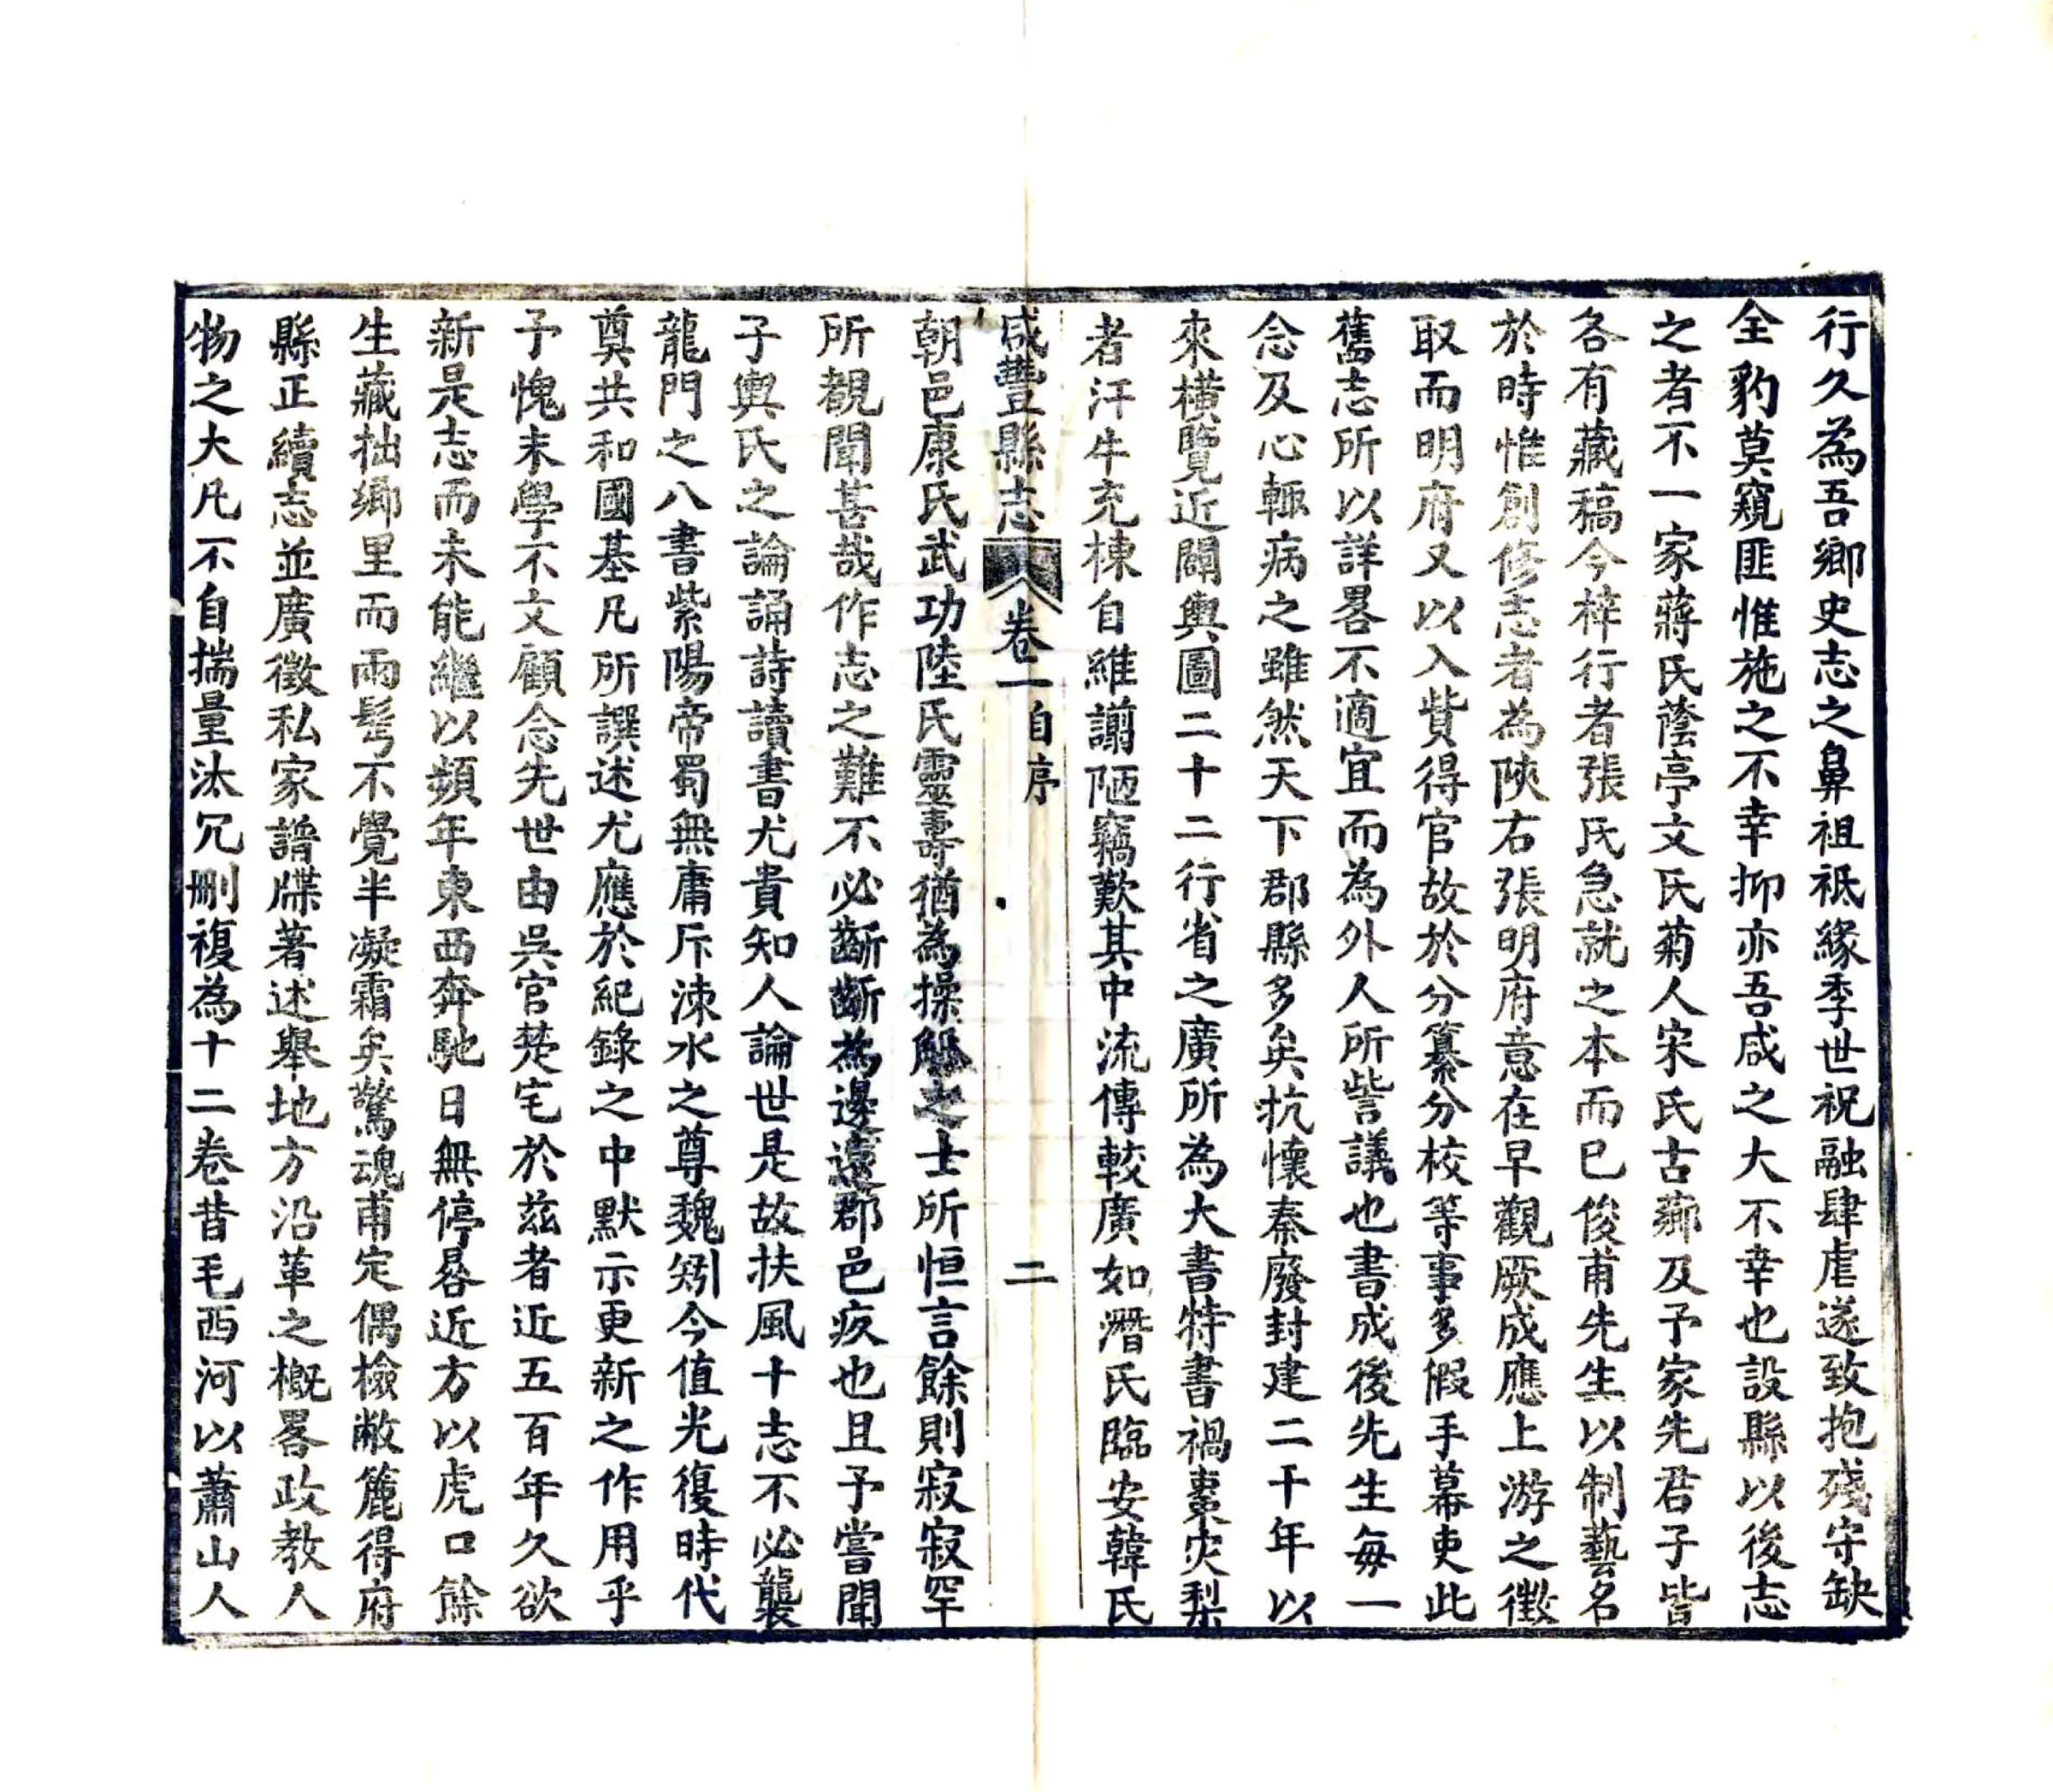 行久為吾鄉史志之鼻祖祗緣季世祝融肆虐遂致抱殘守缺
全豹莫窺匪惟施之不幸抑亦吾咸之大不幸也設縣以後志
之者不一家蔣氏蔭亭文氏菊人宋氏古薌及予家先君子皆
各有藏稿今梓行者張氏急就之本而已俊甫先生以制藝名
於時惟創修志者為陝右張明府意在早觀厥成應上游之徵
取而明府又以入貲得官故於分纂分校等事多假手幕吏此
舊志所以詳畧不適宜而為外人所訾議也書成後先生每一
念及心輒病之雖然天下郡縣多矣抗懷秦廢封建二千年以
來橫覽近闢輿圖二十二行省之廣所為大書特書禍棗灾梨
者汗牛充棟自維謭陋竊歎其中流傳較廣如潛氏臨安韓氏
咸豐縣志 卷一 自序 二
朝邑康氏武功陸氏靈壽猶為操觚之士所恒言餘則寂寂罕
所覩聞甚哉作志之難不必斷斷為邊遠郡邑疚也且予嘗聞
子輿氏之論誦詩讀書尤貴知人論世是故扶風十志不必襲
龍門之八書紫陽帝蜀無庸斥涑水之尊魏矧今值光復時代
奠共和國基凡所譔述尤應於紀錄之中默示更新之作用乎
予愧末學不文顧念先世由吳官楚宅於茲者近五百年久欲
新是志而未能繼以頻年東西奔馳日無停晷近方以虎口餘
生藏拙鄉里而兩髩不覺半凝霜矣驚魂甫定偶檢敝簏得府
縣正續志並廣徵私家譜牒著述舉地方沿革之概畧政教人
物之大凡不自揣量汰冗刪複為十二卷昔毛西河以蕭山人